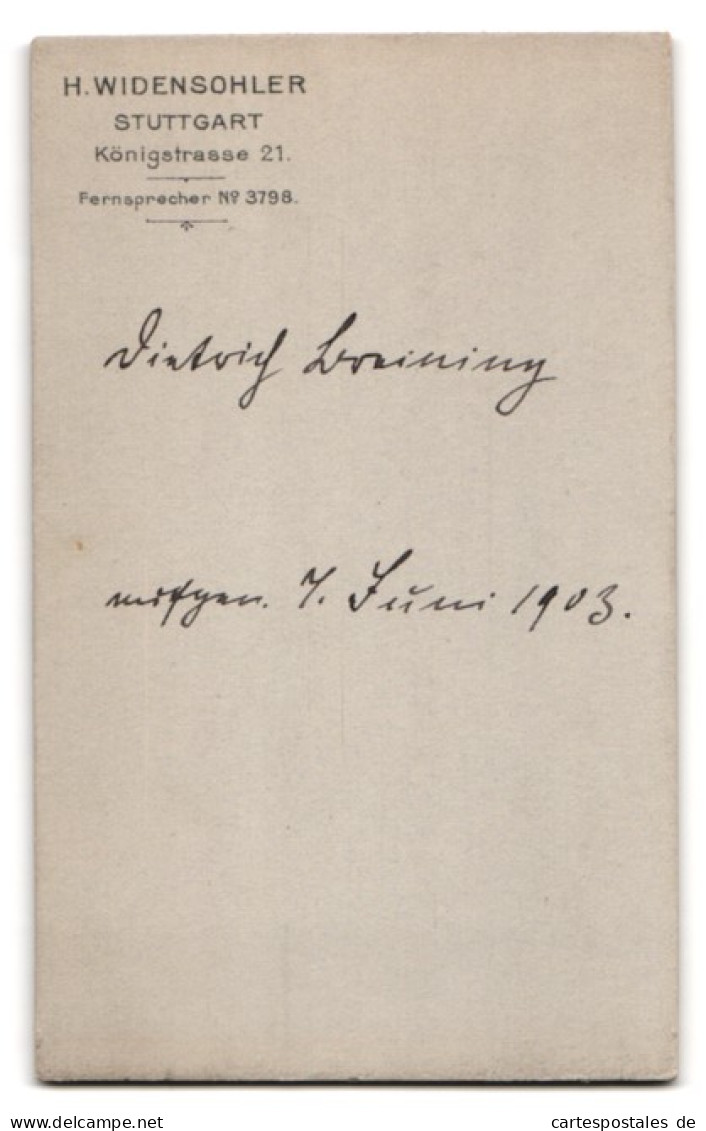 H. WIDENSOHLER
STUTTGART
Königstrasse 21.
Fernsprecher Nº 3798.
Dietrich Breining
aufgen. 7. Juni 1903.
www.delcampe.net
cartespostales de